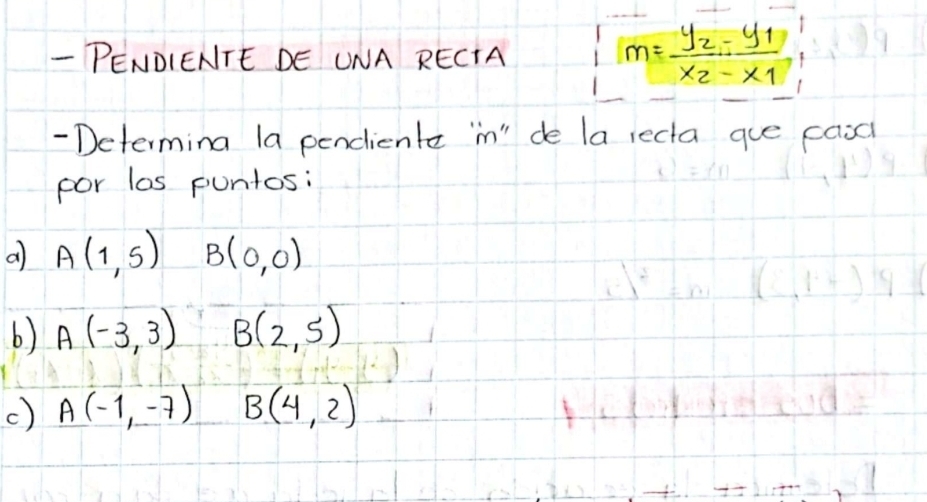 - PENDIENTE DE UNA RECTA
m = y2 - y1 / x2 - x1
- Determina la pendiente "m" de la recta que pasa
por los puntos:
a) A(1,5) B(0,0)
b) A(-3,3) B(2,5)
c) A(-1,-7) B(4,2)